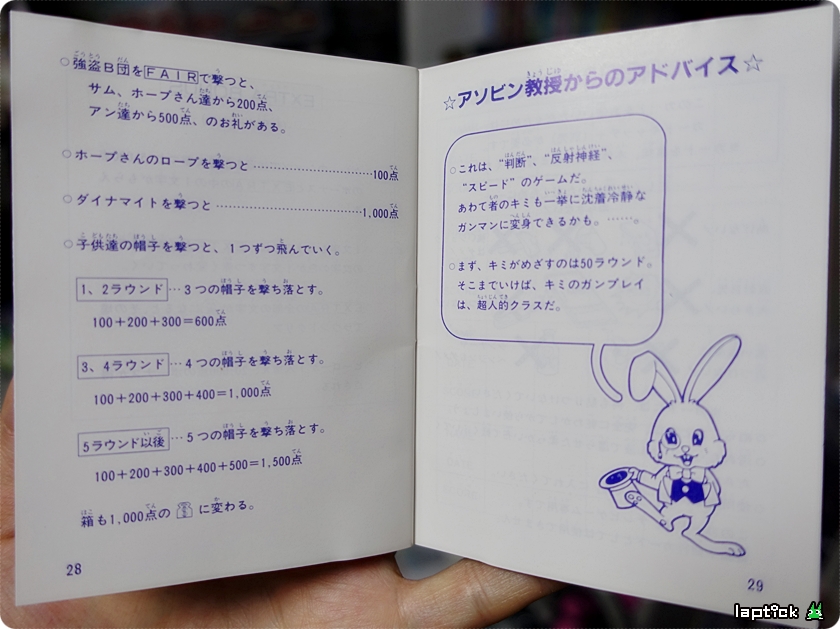 ○強盗B団をFAIRで撃つと、
サム、ホープさん達から200点、
アン達から500点、のお礼がある。
○ホープさんのロープを撃つと……………………100点
○ダイナマイトを撃つと……………………………1,000点
○子供達の帽子を撃つと、1つずつ飛んでいく。
1、2ラウンド…3つの帽子を撃ち落とす。
100+200+300=600点
3、4ラウンド…4つの帽子を撃ち落とす。
100+200+300+400=1,000点
5ラウンド以後…5つの帽子を撃ち落とす。
100+200+300+400+500=1,500点
箱も1,000点の に変わる。
28
☆アソビン教授からのアドバイス☆
○これは、“判断”、“反射神経”、
“スピード”のゲームだ。
あわて者のキミも一挙に沈着冷静な
ガンマンに変身できるかも。……。
○まず、キミがめざすのは50ラウンド。
そこまでいけば、キミのガンプレイ
は、超人的クラスだ。
29
laptick